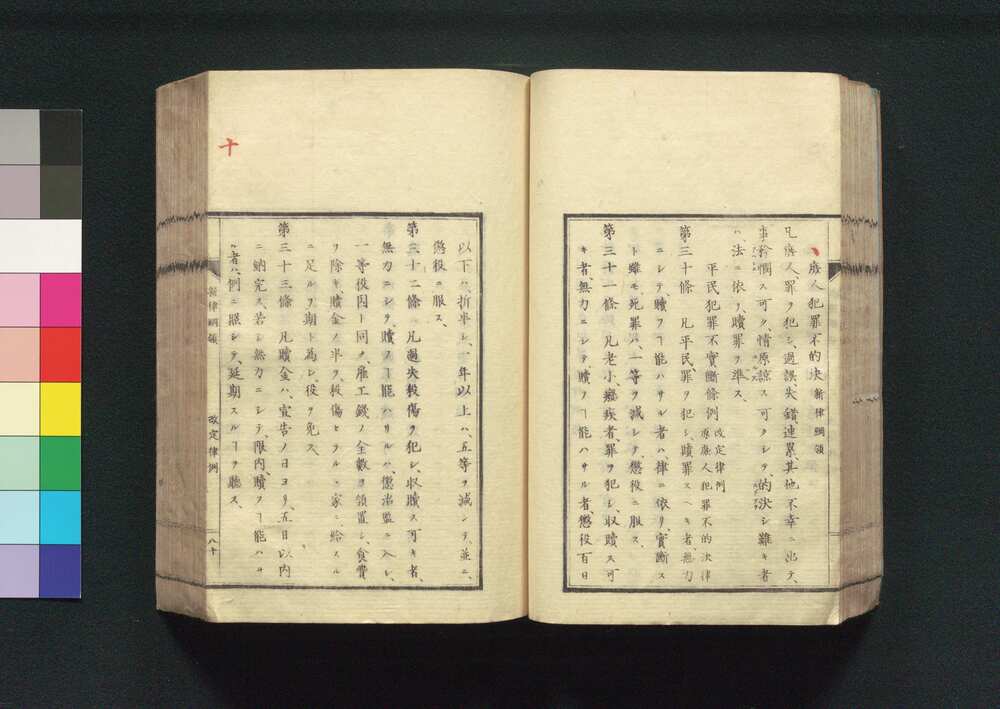 廢人犯罪不的決 新律綱領
凡廢人、罪ヲ犯シ、過誤失錯連累、其他不幸ニ出テ、
事矜憫ス可ク、情原諒ス可クシテ、的決シ難キ者
ハ、法ニ依リ、贖罪ヲ準ス、
平民犯罪不實斷條例 改定律例
原廢人犯罪不的決律
第三十條 凡平民、罪ヲ犯シ、贖罪スヘキ者、無力
ニシテ贖フヿ能ハサル者ハ、律ニ依リ、實斷ス
ト雖モ、死罪ハ、一等ヲ減シテ、懲役ニ服ス、
第三十一條 凡老小、癈疾者、罪ヲ犯シ、收贖ス可
キ者、無力ニシテ、贖フヿ能ハサル者、懲役百日
以下ハ、折半シ、一年以上ハ、五等ヲ減シテ、並ニ、
懲役ニ服ス、
第三十二條 凡過失殺傷ヲ犯シ、收贖ス可キ者、
無力ニシテ、贖フヿ能ハサルハ、懲治監ニ入レ、
一等役囚ト同ク、雇工錢ノ全數ヲ領置シ、食費
ヲ除キ、贖金ノ半ヲ、殺傷セラルヽ家ニ、給スル
ニ足ルヲ期ト為シ、役ヲ免ス、
第三十三條 凡贖金ハ、宣告ノ日ヨリ、五日以内
ニ納完ス、若シ無力ニシテ、限内、贖フヿ能ハサ
ル者ハ、例ニ照シテ、延期スルヿヲ聽ス、
新律綱領 改定律例 八十
十